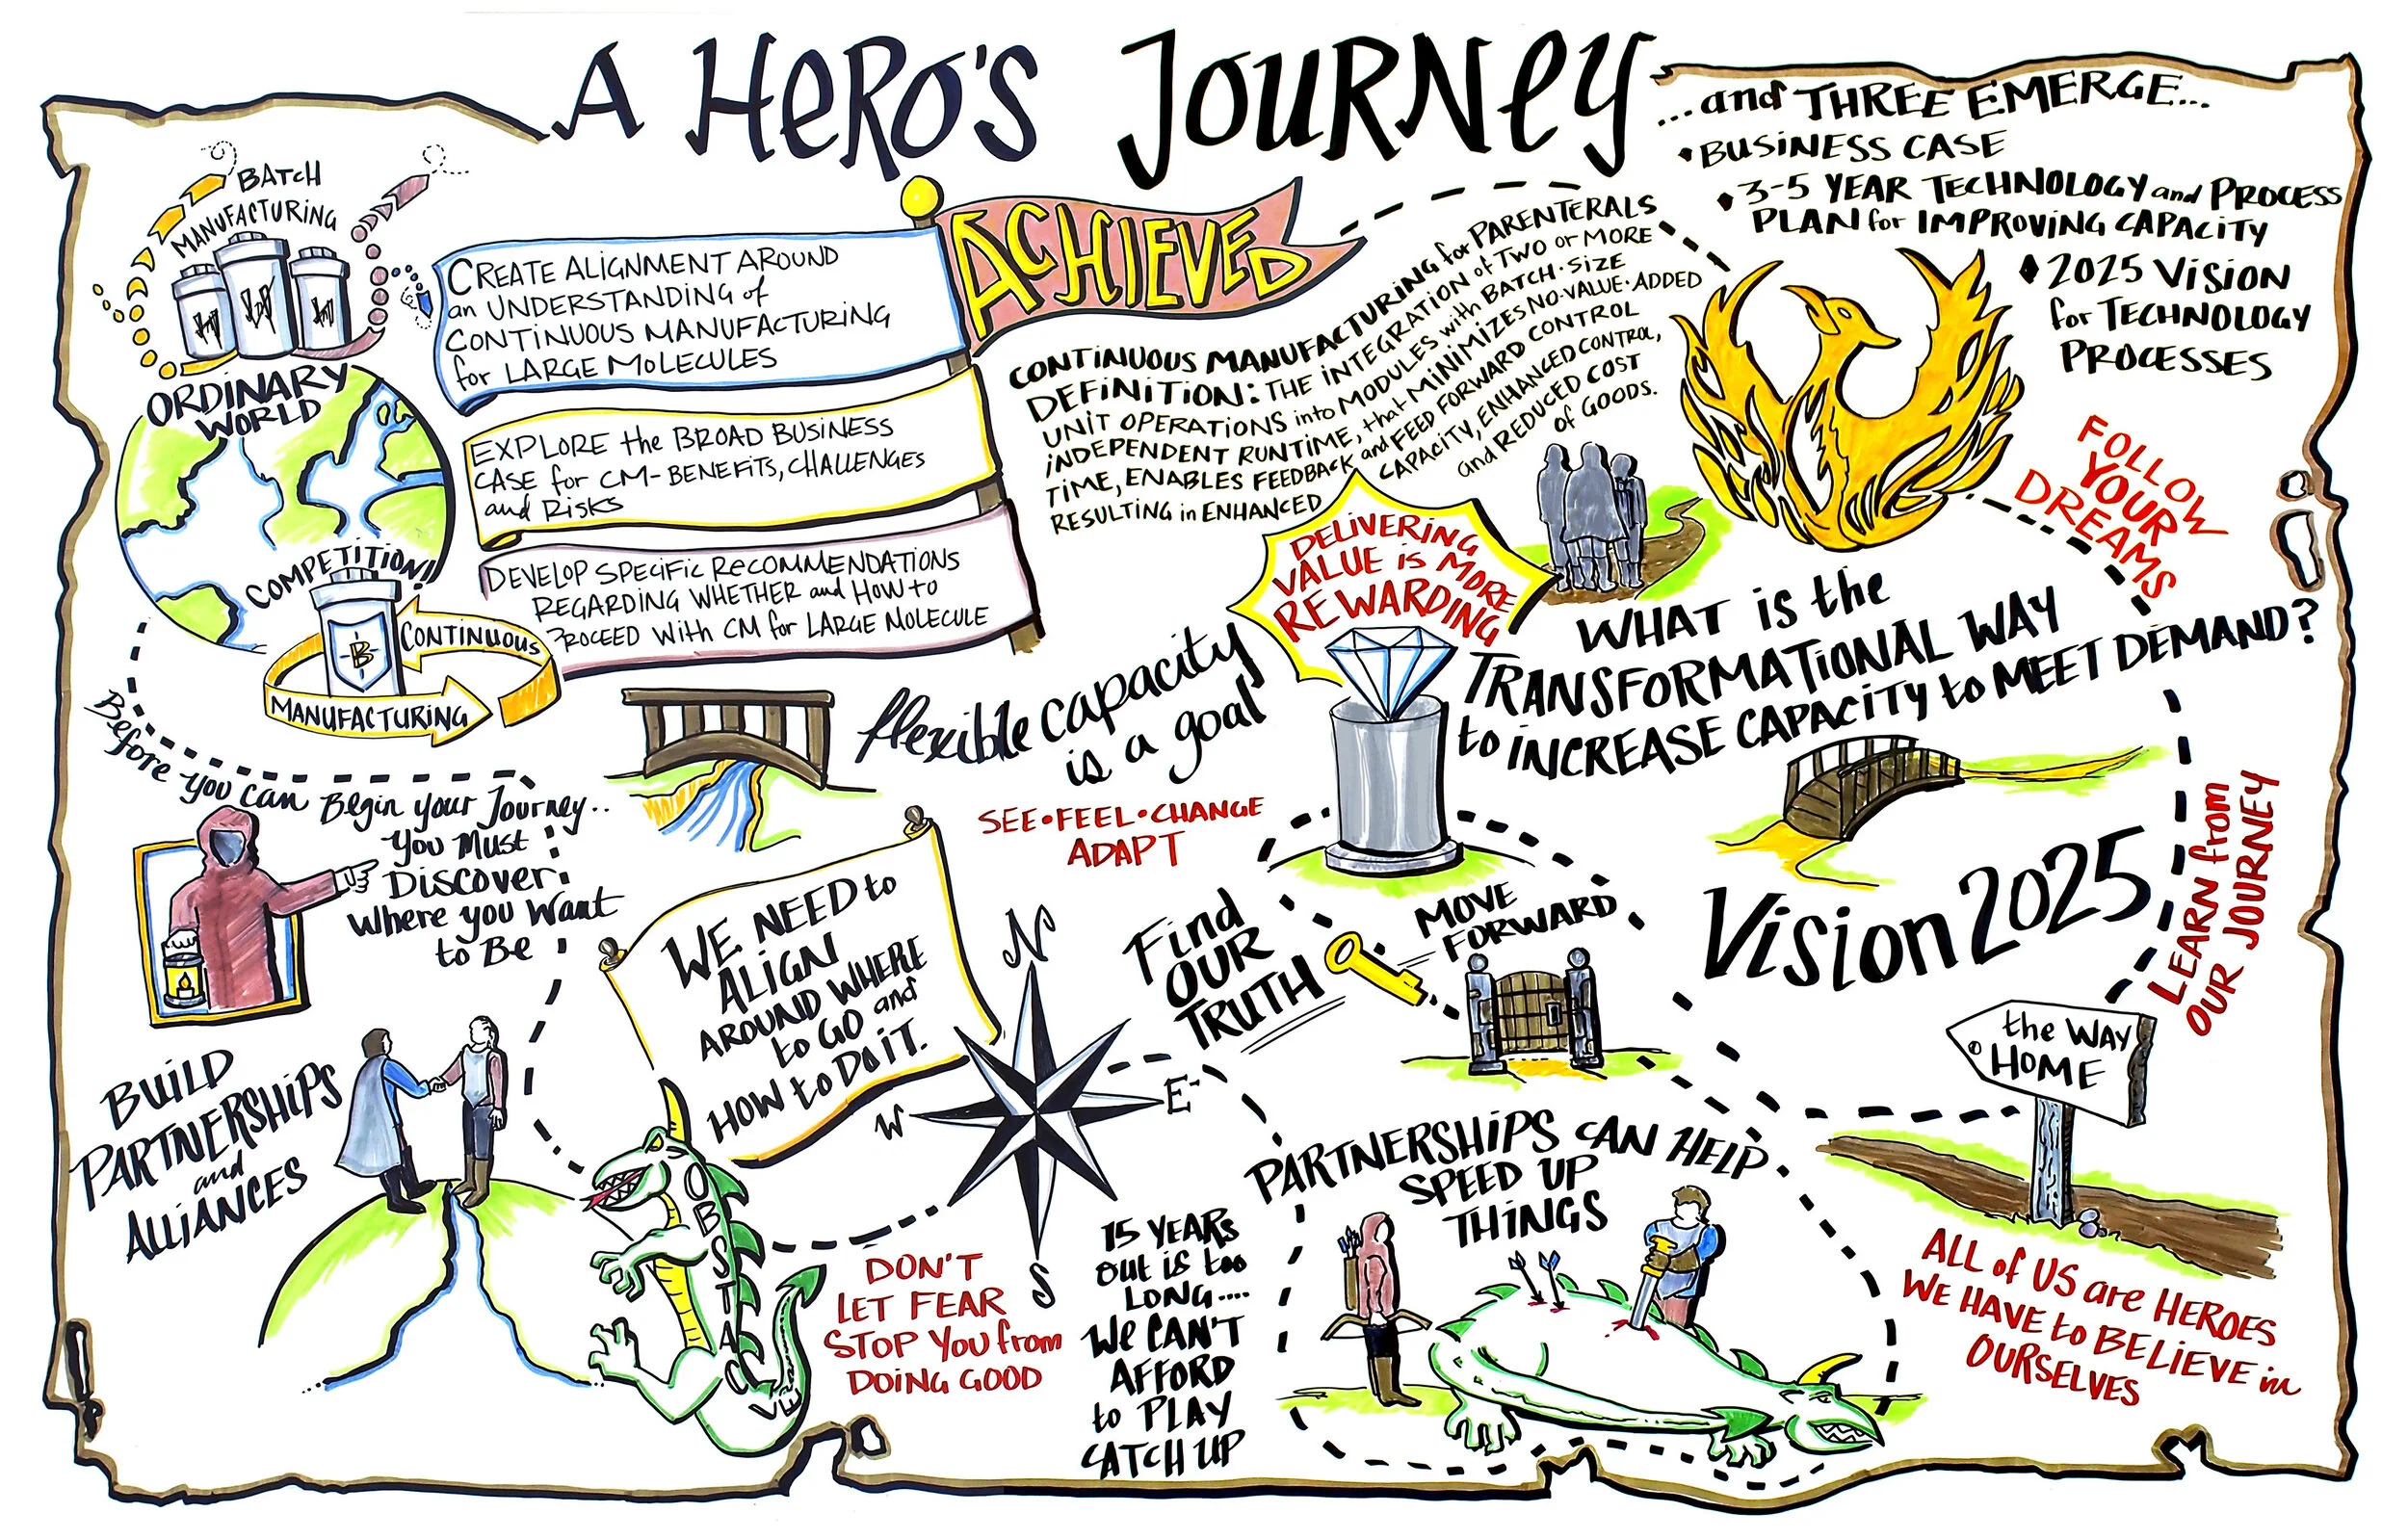 A HERO'S JOURNEY
BATCH
MANUFACTURING
ORDINARY
WORLD
COMPETITION!
B
CONTINUOUS
MANUFACTURING
CREATE ALIGNMENT AROUND
an UNDERSTANDING of
CONTINUOUS MANUFACTURING
for LARGE MOLECULES
EXPLORE the BROAD BUSINESS
CASE for CM- BENEFITS, CHALLENGES
and RISKS
DEVELOP SPECIFIC RECOMMENDATIONS
REGARDING WHETHER and HOW to
PROCEED WITH CM for LARGE MOLECULE
ACHIEVED
CONTINUOUS MANUFACTURING for PARENTERALS
DEFINITION: THE INTEGRATION of TWO or MORE
UNIT OPERATIONS into MODULES with BATCH-SIZE
INDEPENDENT RUNTIME, that MINIMIZES NO-VALUE-ADDED
TIME, ENABLES FEEDBACK and FEED FORWARD CONTROL
RESULTING in ENHANCED CAPACITY, ENHANCED CONTROL,
and REDUCED COST
of GOODS.
...and THREE EMERGE...
• BUSINESS CASE
• 3-5 YEAR TECHNOLOGY and PROCESS
PLAN for IMPROVING CAPACITY
• 2025 VISION
for TECHNOLOGY
PROCESSES
FOLLOW
YOUR
DREAMS
DELIVERING
VALUE is MORE
REWARDING
WHAT is the
TRANSFORMATIONAL WAY
to INCREASE CAPACITY to MEET DEMAND?
flexible capacity
is a goal
SEE•FEEL•CHANGE
ADAPT
Before you can Begin your Journey..
You Must
Discover
Where you Want
to Be
BUILD
PARTNERSHIPS
and
ALLIANCES
WE NEED to
ALIGN
AROUND WHERE
to GO and
HOW to DO IT.
N
E
S
W
OBSTACLE
DON'T
LET FEAR
STOP YOU from
DOING GOOD
Find
OUR
TRUTH
MOVE
FORWARD
Vision 2025
LEARN from
OUR JOURNEY
the WAY
HOME
15 YEARS
out is too
LONG....
We CAN'T
AFFORD
to PLAY
CATCH UP
PARTNERSHIPS CAN HELP
SPEED UP
THINGS
ALL of US are HEROES
WE HAVE to BELIEVE in
OURSELVES